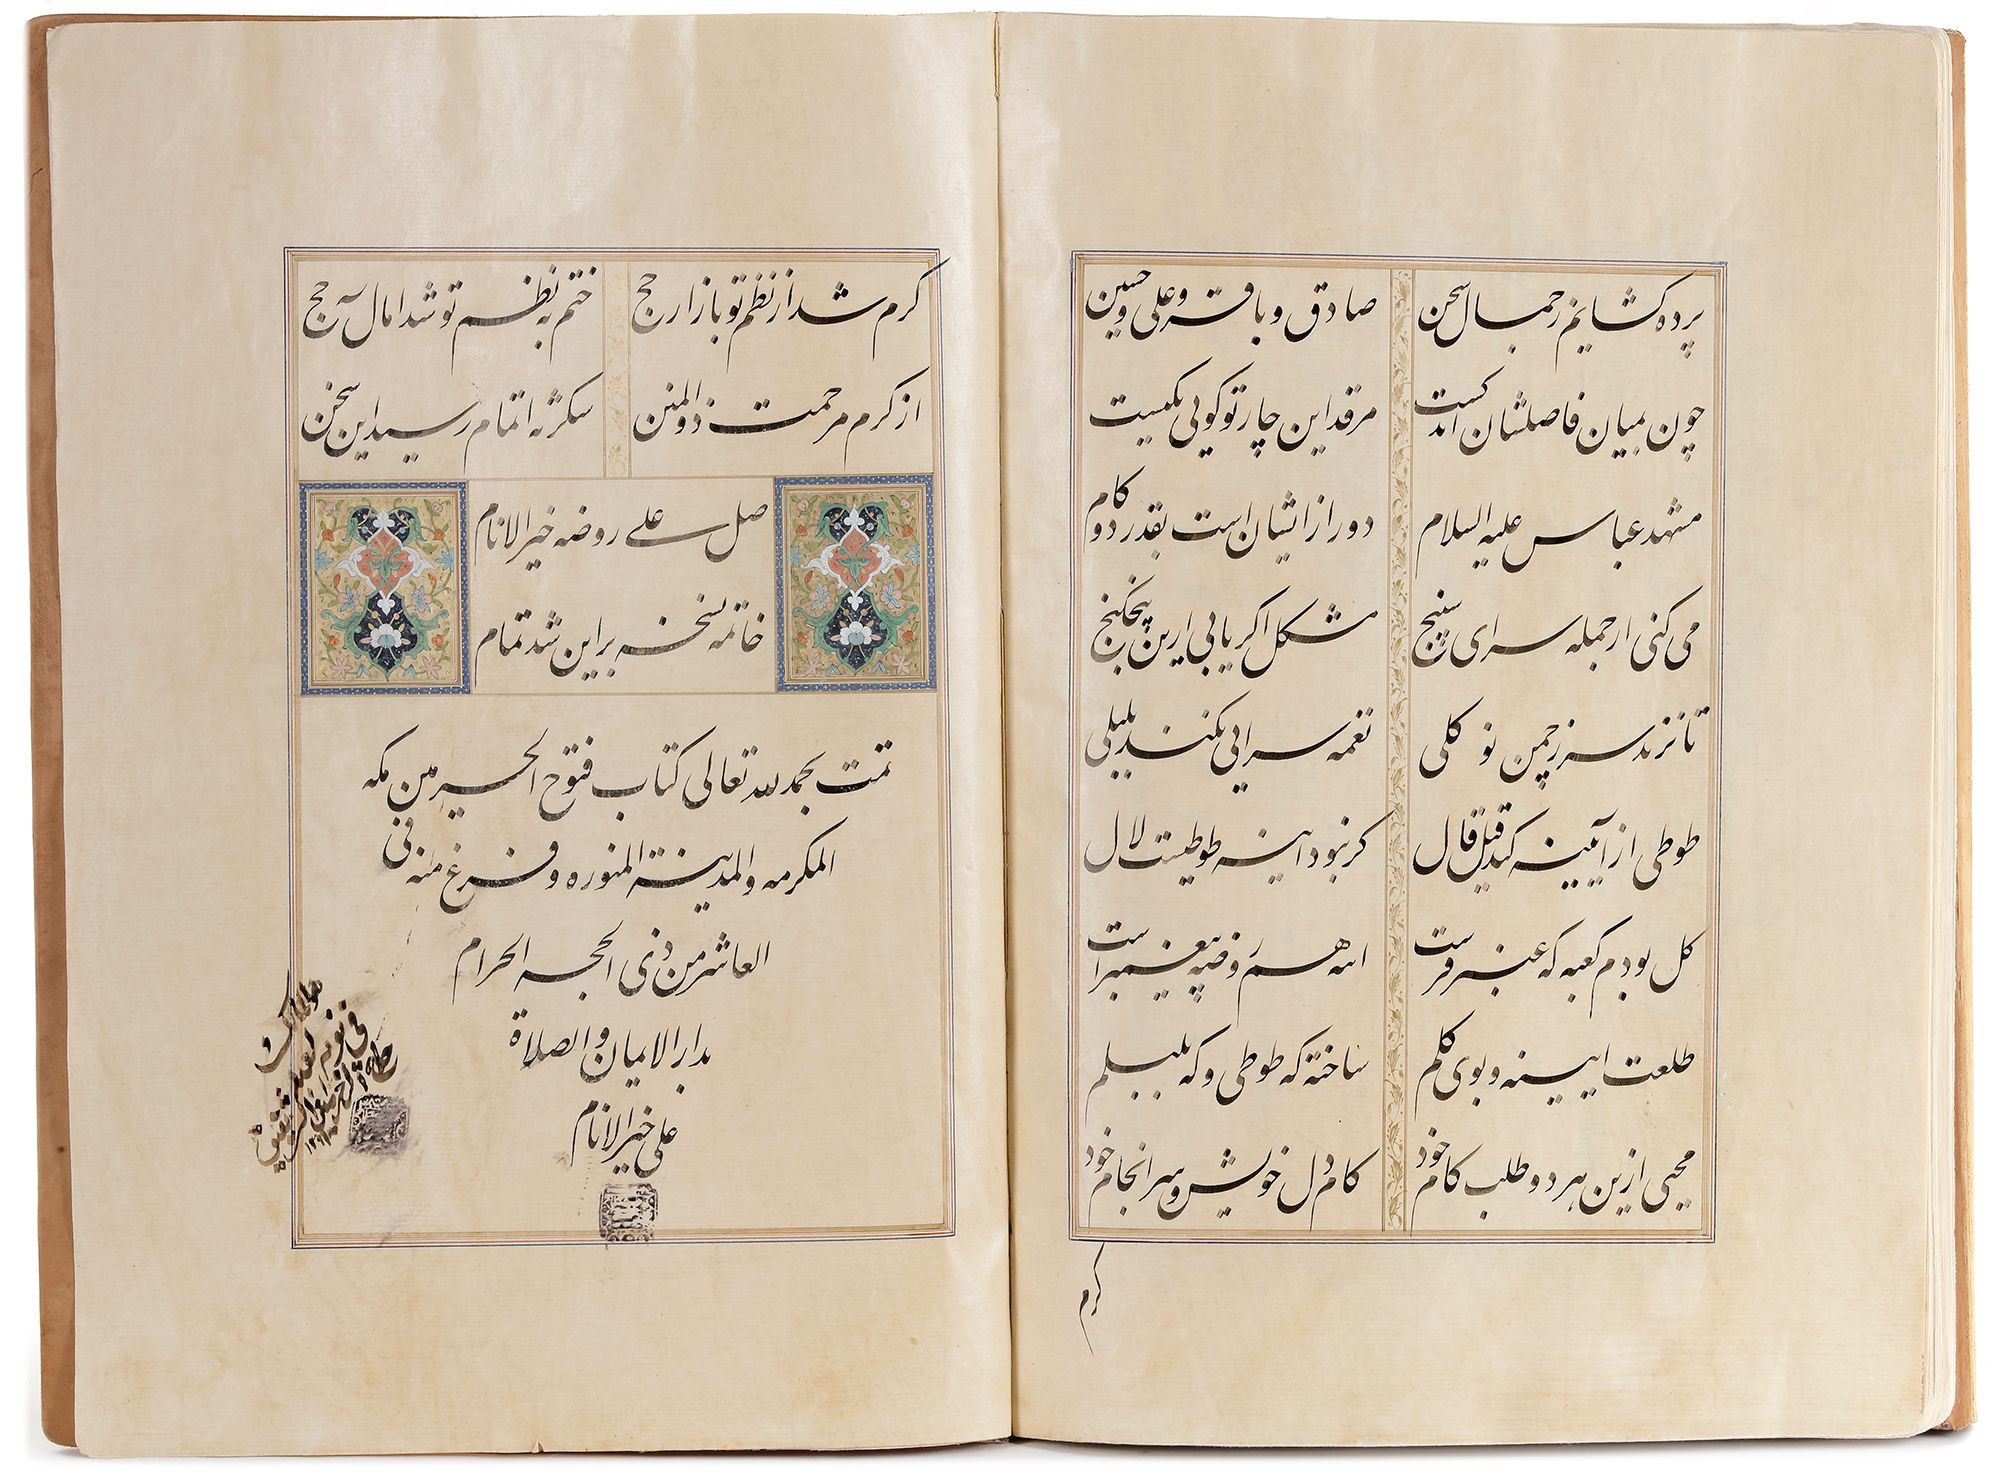 پرده کشایم ز جمال سخن صادق و باقر و علی و حسین
چون بمیان فاصلشان اندکست مرقد این چار تو کویی یکیست
مشهد عباس علیه السلام دور از ایشان است بقدر دو کام
می کنی از جمله سرای سپنج مشکل اکر یابی ازین پنج کنج
تا نزند سر ز چمن نو کلی نغمه سرایی نکند بلبلی
طوطی از آیینه کند قیل و قال کر نبود اینه طوطیست لال
کل بودم کعبه که عنبر فرست اینه هم روضه پیغمبر است
طلعت ایینه و بوی کلم ساخته که طوطی و که بلبلم
محیی ازین هر دو طلب کام خود کام دل خویش و سرانجام خود
کرم
کرم شد از نظم تو بازار حج ختم به نظم تو شد امال حج
از کرم مرحمت ذو المنن شکر که اتمام رسید این سخن
صل علی روضه خیر الانام
خاتمه نسخه بر این شد تمام
تمت بحمد لله تعالی کتاب فتوح الحرمین مکه
المکرمه والمدینة المنوره و فرغ منه فی
العاشر من ذی الحجه الحرام
بدار الایمان و الصلاة
علی خیر الانام